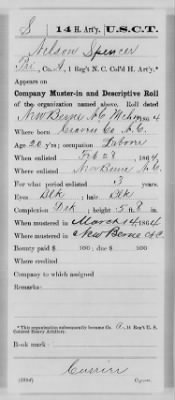 S | 14 H. Art'y. | U.S.C.T.
Nelson Spencer
Pri, Co. A, 1 Reg't N. C. Col'd H. Art'y.*
Appears on
Company Muster-in and Descriptive Roll
of the organization named above. Roll dated
New Berne N.C. Mch 14, 1864
Where born Craven Co. N.C.
Age 20 y'rs; occupation Laborer
When enlisted Feb 28, 1864
Where enlisted New Berne N.C.
For what period enlisted 3 years.
Eyes Blk; hair Blk
Complexion Drk; height 5 ft. 8 in.
When mustered in March 14, 1864
Where mustered in New Berne N.C.
Bounty paid $ 100; due $ 100
Where credited
Company to which assigned
Remarks:
*This organization subsequently became Co. A, 14 Reg't U. S. Colored Heavy Artillery.
Book mark:
Currier
Copyist.